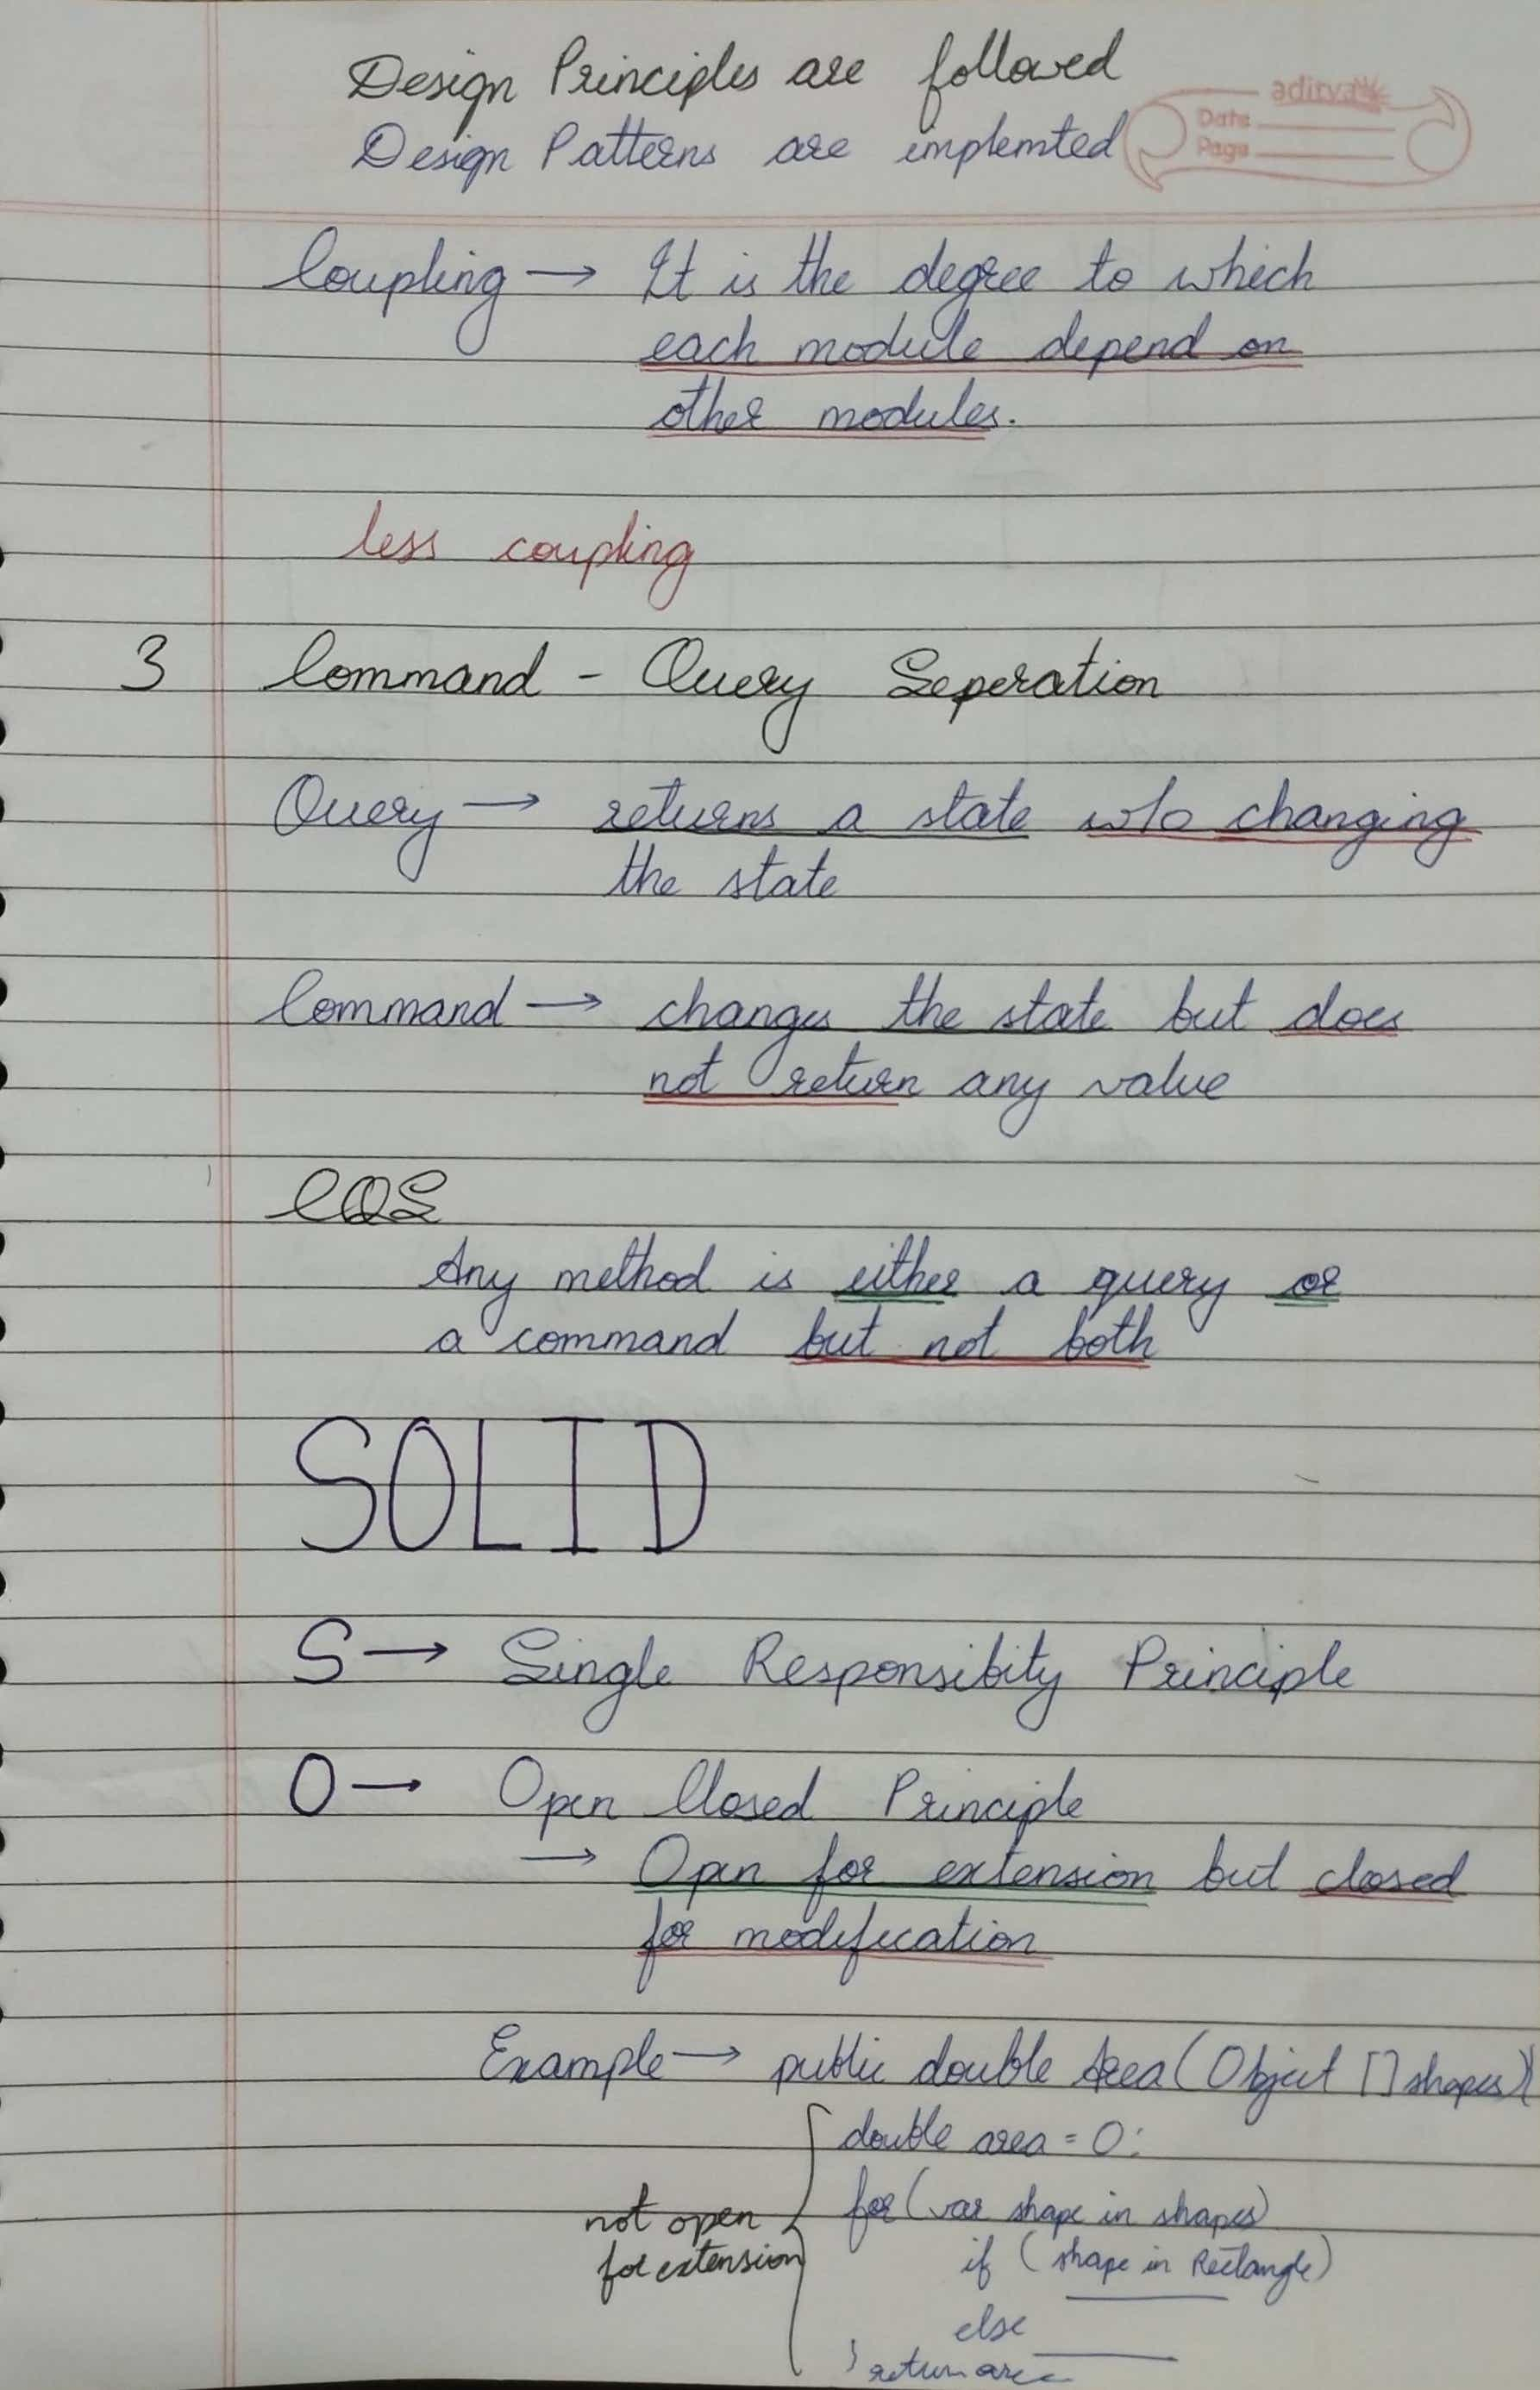 Design Principles are followed
aditya
Date
Page
Design Patterns are implemted
Coupling → It is the degree to which
each module depend on
other modules.
less coupling
3 Command - Query Seperation
Query → returns a state w/o changing
the state
Command → changes the state but does
not return any value
CQS
Any method is either a query or
a command but not both
SOLID
S → Single Responsibity Principle
O → Open Closed Principle
→ Open for extension but closed
for modification
Example → public double Area (Object [] shapes) {
double area = 0;
for (var shape in shapes)
not open
for extension
if (shape in Rectangle)
else
} return area